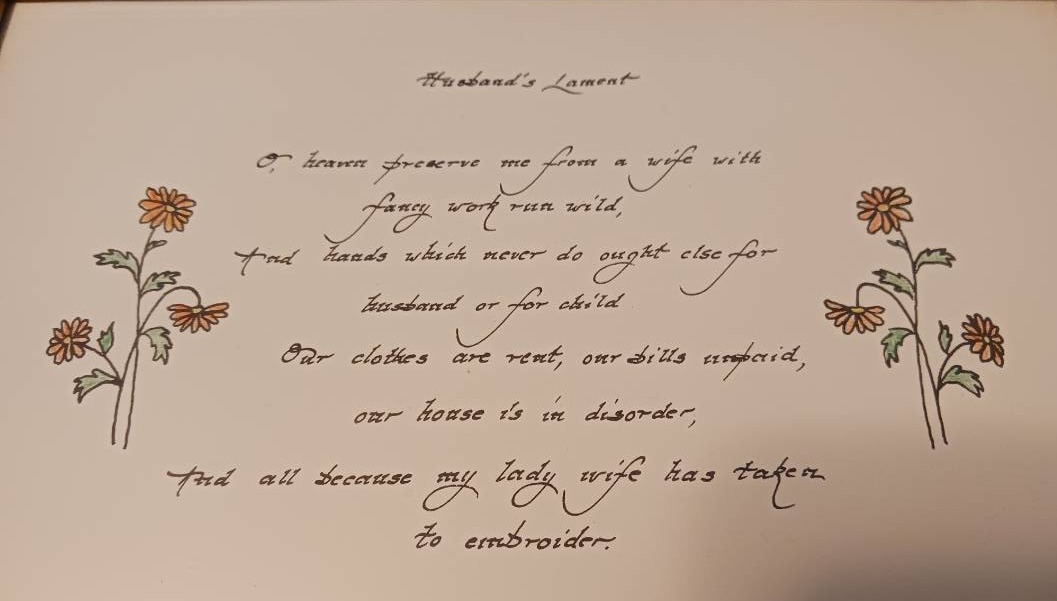 Husband's Lament
O, heaven preserve me from a wife with
fancy work run wild,
And hands which never do ought else for
husband or for child
Our clothes are rent, our bills unpaid,
our house is in disorder,
And all because my lady wife has taken
to embroider.